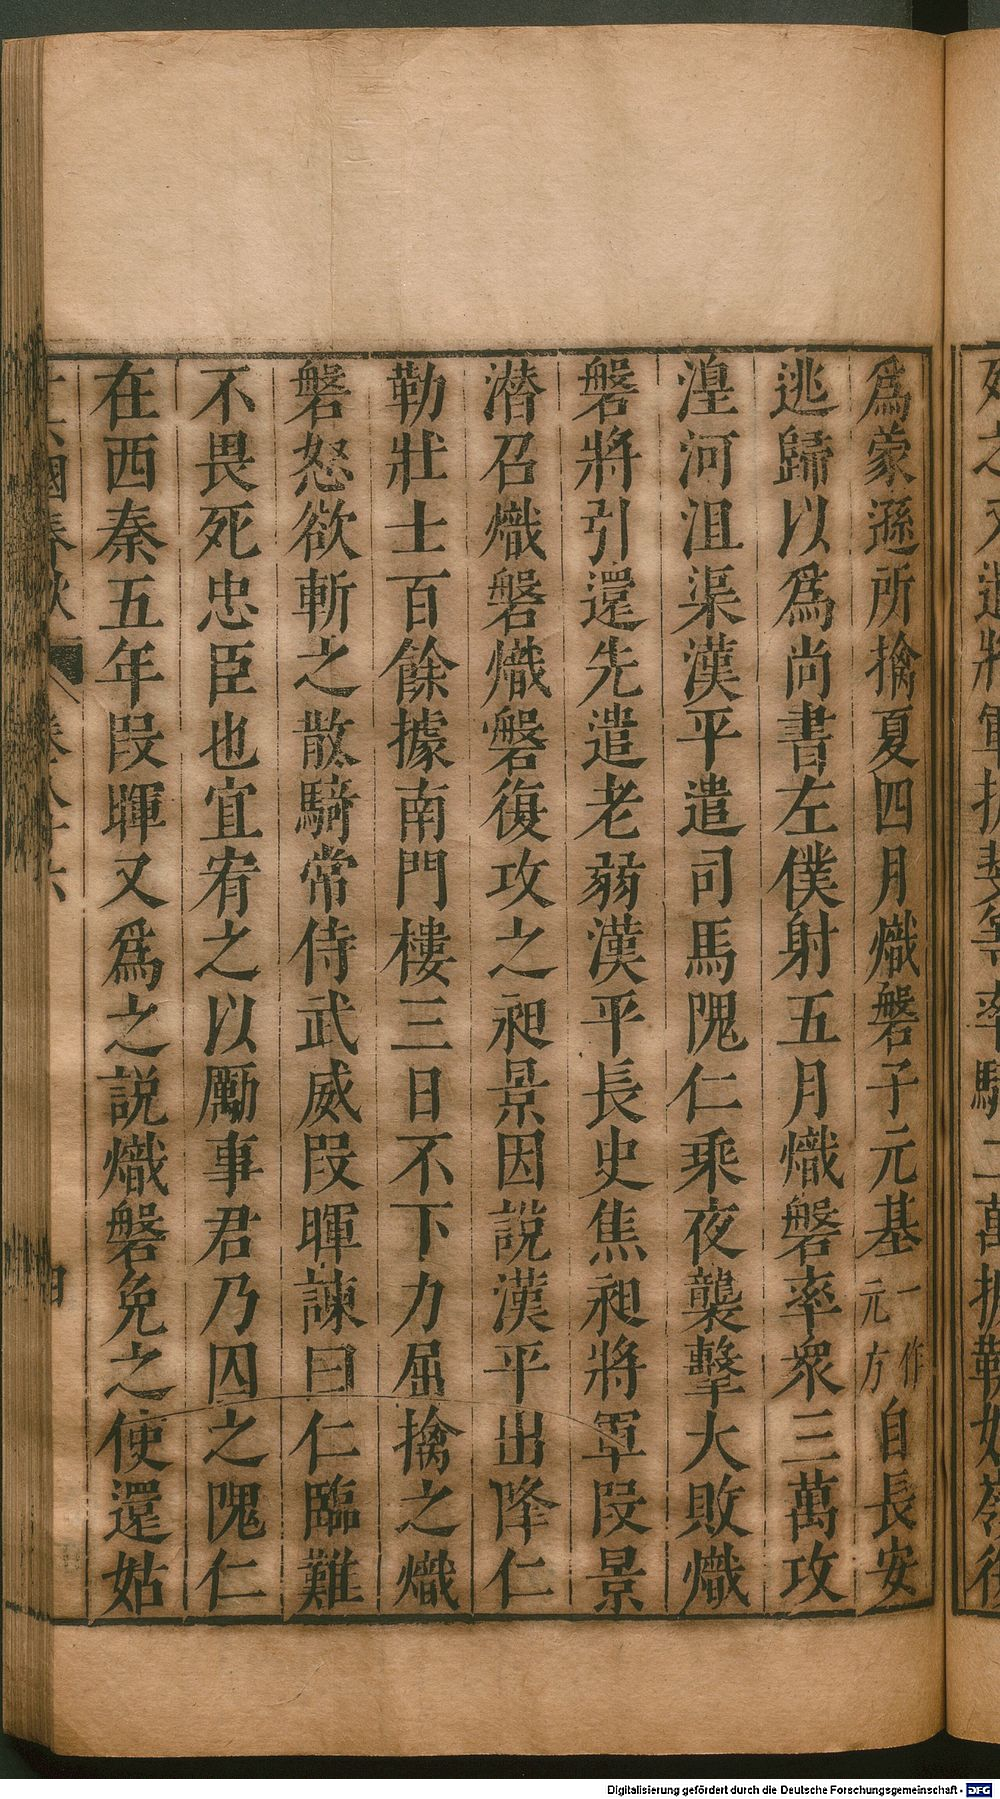 爲蒙遜所擒夏四月熾磐子元基一作元方自長安
逃歸以爲尚書左僕射五月熾磐率衆三萬攻
湟河沮渠漢平遣司馬隗仁乘夜襲擊大敗熾
磐將引還先遣老弱漢平長史焦昶將軍段景
潛召熾磐熾磐復攻之昶景因說漢平出降仁
勒壯士百餘據南門樓三日不下力屈擒之熾
磐怒欲斬之散騎常侍武威段暉諫曰仁臨難
不畏死忠臣也宜宥之以勵事君乃囚之隗仁
在西秦五年段暉又爲之説熾磐免之使還姑
國春秋
Digitalisierung gefördert durch die Deutsche Forschungsgemeinschaft - DFG